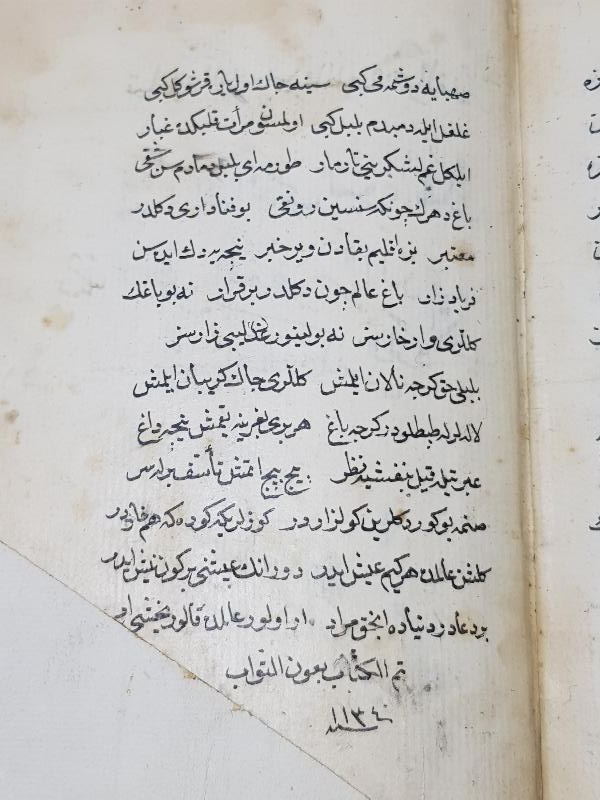 صهبایه دوشمه می کبی سینه چاك اول یار قرشو کل کبی
غلغل ایله دمبدم بلبل کبی اولمسون مرأت قلبكده غبار
ایله کل غم لشکرینی تارمار طورمه ای بلبل دمادم سن شقی
باغ دهرك چونکه سنسین رونقی بو فنا داری دکلدر
معتبر بزه اقلیم بقادن ویر خبر نیجه یه دك ایده سن
فریاد زار باغ عالم چون دکلدر برقرار نه بو باغك
کللری وار خارسز نه بولینور عندلیبی زارسز
بلبلی حق کرچه نالان ایلمش کللری چاك کریبان ایلمش
لاله لرله ططلودر کرچه باغ هر بری بغرینه یقمش نیجه داغ
عبرتیله قیل بنفشیه نظر پیچ پیچ اتمش تأسف برله سر
صنمه بو کوردکلرین کولزاردر کوزلریکه کوده که هم خاردر
کلشن عالمده هرکیم عیش ایدر دورانك عیشنی برکون نیش ایدر
بر دعادر دنیاده انجق مراد ار اولور عالمده قالور یخشی اد
تم الکتاب بعون التواب
سنه ١١٣٤